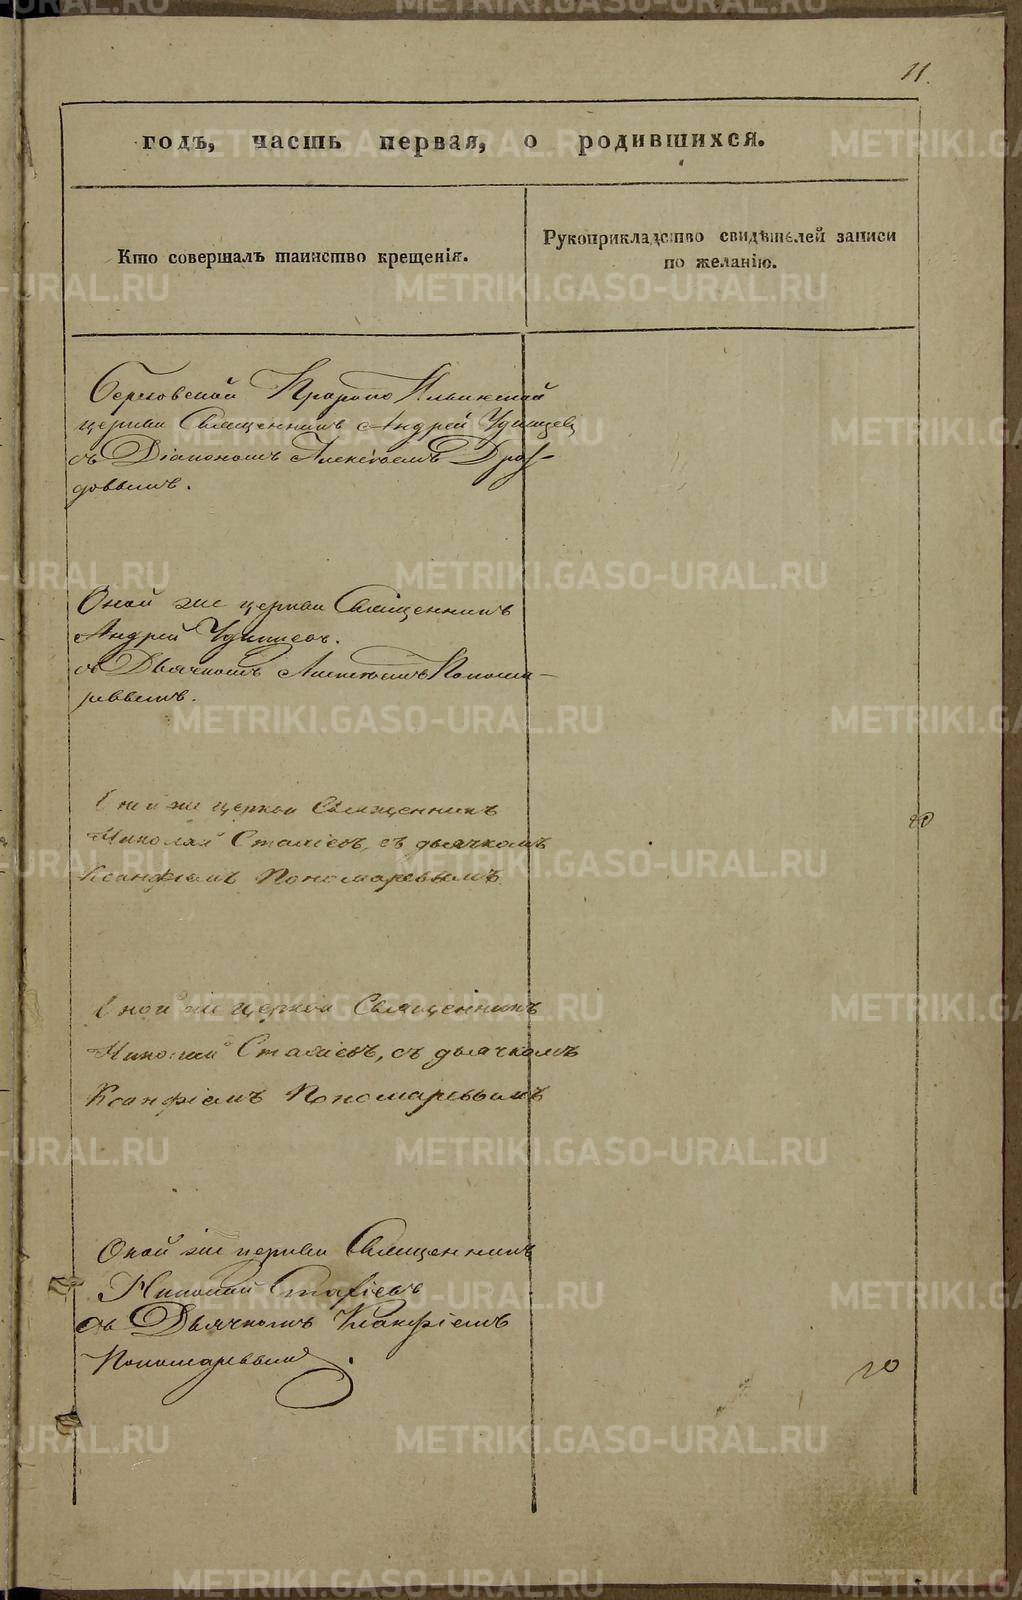 11.
годъ, часть первая, о родившихся.
Кто совершалъ таинство крещенія.
Рукоприкладство свидѣтелей записи
по желанію.
церкви Священникъ Андрей Удинцевъ
съ Діакономъ Алексѣемъ Дроз-
довымъ.
Оной же церкви Священникъ
Андрей Удинцевъ.
съ Дьячкомъ Понома-
ревымъ.
Оной же церкви Священникъ
Николай съ дьячкомъ
Ксанфіемъ Пономаревымъ
Оной же церкви Священникъ
Николай съ дьячкомъ
Ксанфіемъ Пономаревымъ
Оной же церкви Священникъ
Николай
съ Дьячкомъ Ксанфіемъ
Пономаревымъ.
20
METRIKI.GASO-URAL.RU